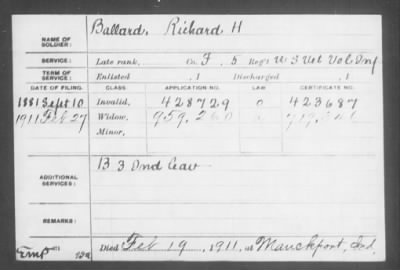 NAME OF SOLDIER: Ballard, Richard H
SERVICE: Late rank, Co. F. 5 Reg't U.S. Vet Vol Inf
TERM OF SERVICE: Enlisted , 1 Discharged , 1
DATE OF FILING. CLASS. APPLICATION NO. LAW. CERTIFICATE NO.
1881 Sept 10 Invalid, 428729 423687
1911 Feb 27 Widow, 959,260
Minor,
ADDITIONAL SERVICES: B 3 Ind Cav
REMARKS:
Died Feb 19, 1911, at Mauckport, Ind.